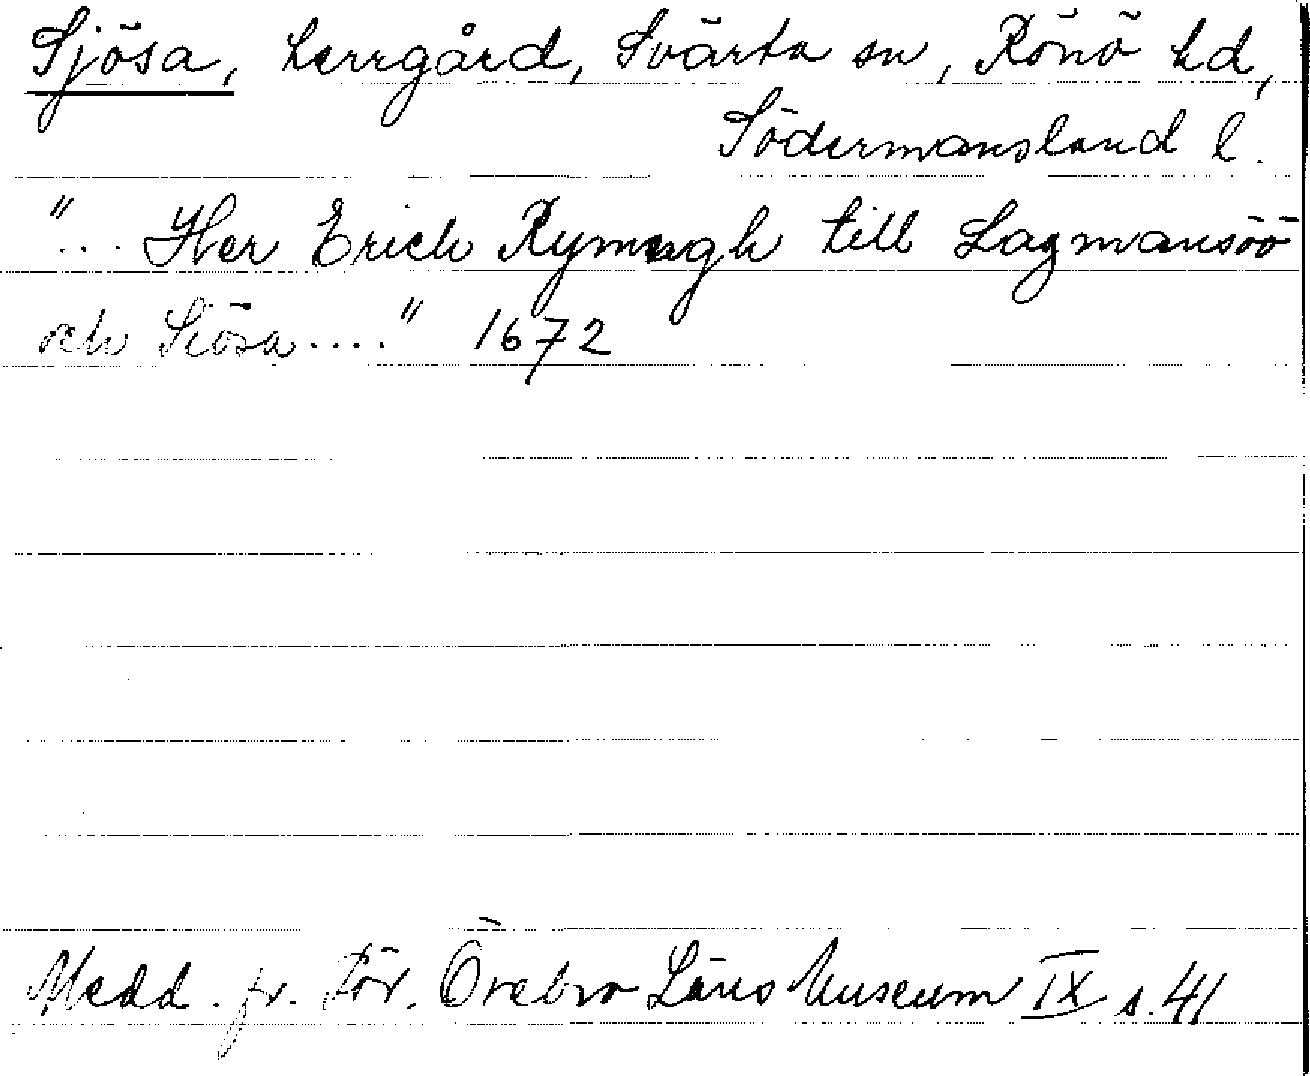 Sjösa, herrgård, Svärta sn, Rönö hd,
Södermansland l.
"... Her Erich Rynningh till Lagmansöö
och Siösa ...." 1672
Medd. fr. För. Örebro Läns Museum IX s. 41